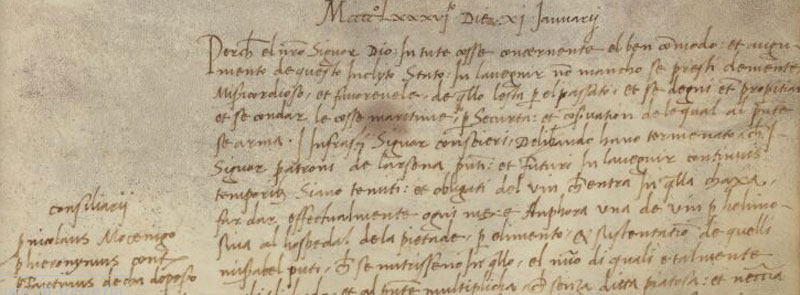 Mcccc° Lxxxvj° Die xj Januarij
Perch el nro Signor Dio: In tute cosse concernente el ben comodo: et augu
mento de questo Inclyto Stato: In lavegnir no mancho se presti clemente
Misicordioso, et favorevele, de qllo lo sta p el passati, et se degni et propitiar
et secondar le cosse maritime, p Securta: et conservation de le qual al pnte
se arma. I Infrascpti Signor conseieri, Deliberando hano termenato ch I
Signor patroni de larsena pnti: et Futuri In lavegnir continuis
temporib Siano tenuti: et obligati del vin ch entra In qlla chaxa,
far dar effectualmente ogni mexe Anphora una de vin p helimo-
sina al hospedal de la pietade, p elimento, & sustentatio de quelli
misabel puti, ch se nutrisseno In qllo, el nuo di quali e talmente
et al pnte multiplicha ch senza ditta piatosa: et neccia
consiliarij
p nicolaus Mocenigo
p hieronymus cont